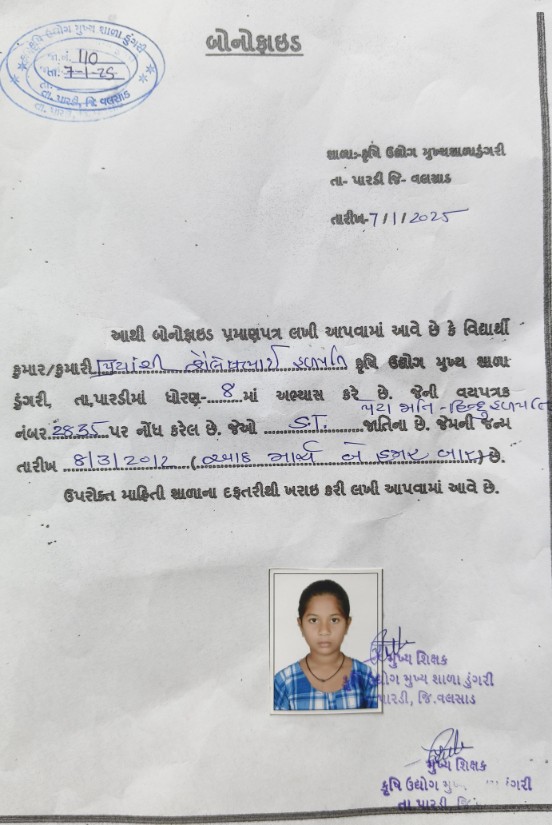 કૃષિ ઉદ્યોગ મુખ્ય શાળા ડુંગરી
જા.નં. 110
તા. 7-1-25
તા. પારડી, જિ. વલસાડ
બોનોફાઇડ
શાળા:-કૃષિ ઉદ્યોગ મુખ્યશાળાડુંગરી
તા- પારડી જિ- વલસાડ
તારીખ-7/1/2025
આથી બોનોફાઇડ પ્રમાણપત્ર લખી આપવામાં આવે છે કે વિદ્યાર્થી
કુમાર/કુમારી પ્રિયાંશી શૈલેષભાઈ હળપતિ કૃષિ ઉદ્યોગ મુખ્ય શાળા
ડુંગરી, તા.પારડીમાં ધોરણ-8માં અભ્યાસ કરે છે. જેની વયપત્રક
પેટા જાતિ - હિન્દુ હળપતિ
નંબર 2835 પર નોંધ કરેલ છે. જેઓ S.T. જાતિના છે. જેમની જન્મ
તારીખ 8/3/2012 (આઠ માર્ચ બે હજાર બાર) છે.
ઉપરોક્ત માહિતી શાળાના દફતરીથી ખરાઇ કરી લખી આપવામાં આવે છે.
મુખ્ય શિક્ષક
કૃષિ ઉદ્યોગ મુખ્ય શાળા ડુંગરી
પારડી, જિ.વલસાડ
મુખ્ય શિક્ષક
કૃષિ ઉદ્યોગ મુખ્ય ડુંગરી
તા પારડી, જિ